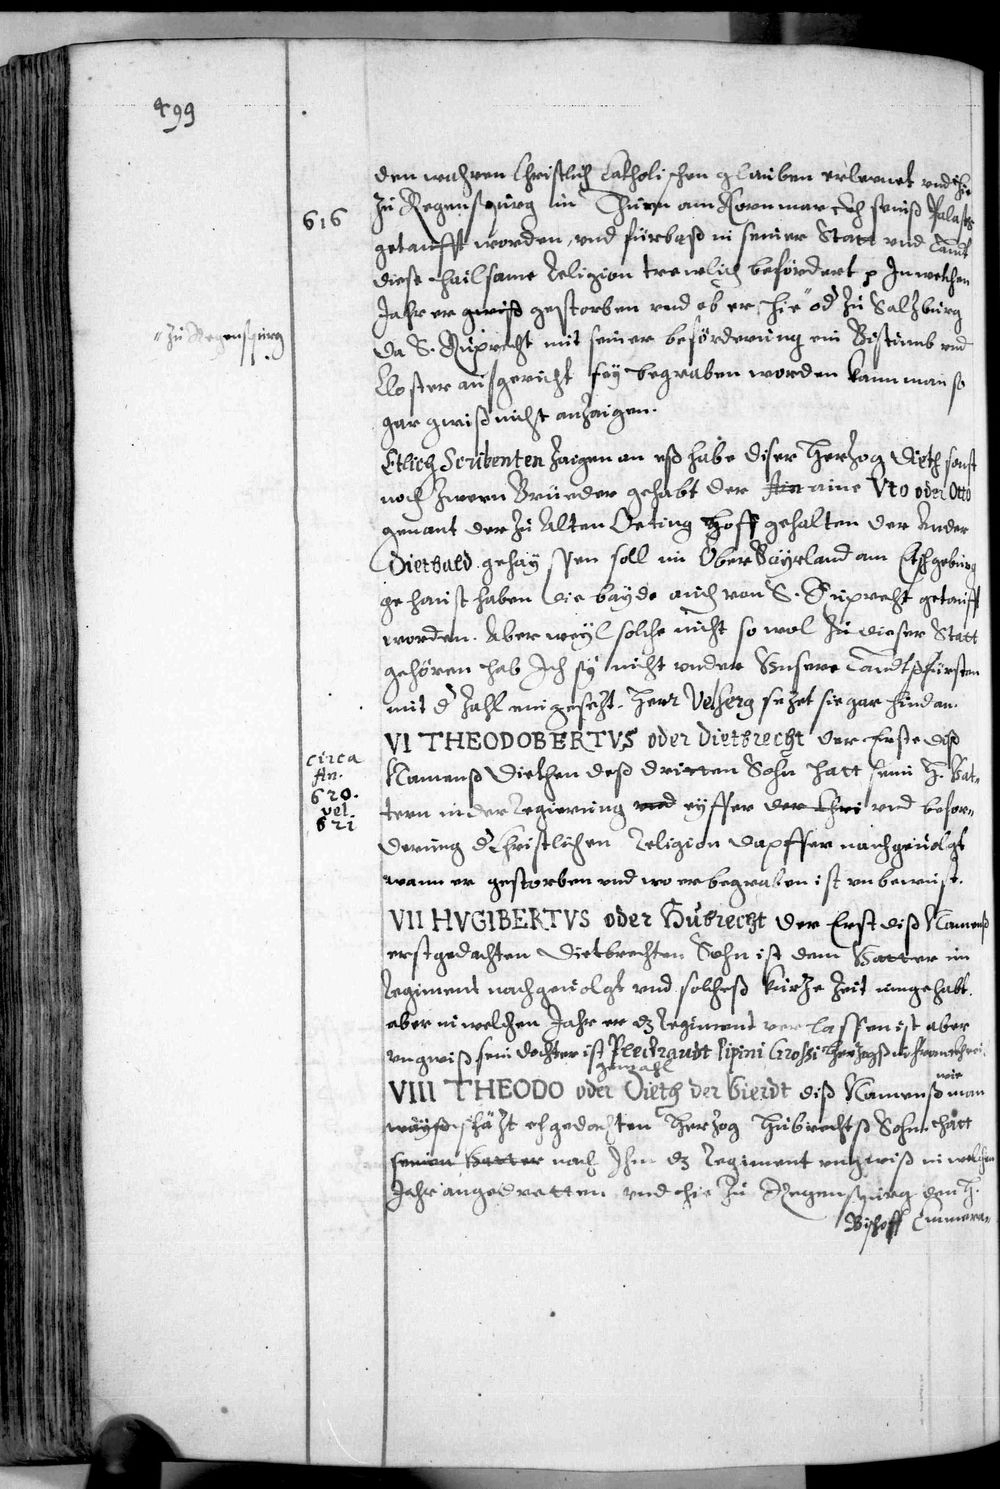 499
den wahren Christlich Catholischen glauben erlernet vnd hie
616
zu Regenspurg im Thurn am Kornmarckh seineß Palasts
getaufft worden, vnd fürbaß in seiner Statt vnd Landt
diese hailsame Religion trewlich befördert p In welchem
Jahr er gwiß gestorben vnd ob er hie od zu Salzburg
" zu Regenspurg
da S. Ruprecht mit seiner beförderung ein Bistumb vnd
Closter aufgericht sey begraben worden kann man so
gar gwiß nicht anzaigen.
Etlich Scribenten zaigen an eß habe diser Herzog Dieth sonst
noch zween Brüeder gehabt der Ain aine Vto oder Otto
genant der zu Alten Oeting Hoff gehalten der Ander
Dietbald gehayssen soll im Ober Bayrland am Etschgebürg
gehaust haben die bayde auch von S. Ruprecht getaufft
worden. Aber weyl solche nicht so wol zu dieser Statt
gehören hab Ich sy nicht vnder Vnsere Landtsfürsten
mit d Zahl eingesetzt. Herr Velserg sezet sie gar hindan.
VI THEODOBERTVS oder Dietbrecht der Erste diß
circa
An.
620.
vel
621
Namenß Diethen deß dritten Sohn hatt seim H. Vat-
tern in der Regierung vnd eyffer der Chri vnd beför-
derung d Christlichen Religion dapffer nachgeuolgt
wann er gestorben vnd wo er begraben ist vnbewust.
VII HVGIBERTVS oder Hubrecht der Erst diß Namenß
erstgedachten Dietbrechten Sohn ist dem Vatter im
Regiment nachgeuolgt vnd solcheß kurze Zeit inngehabt.
aber in welchen Jahr er dz Regiment verlassen ist aber
vngwiß sein dochter ist Plectraudt Pipini Grossi Herzogß in Franckhreich
gemahl
VIII THEODO oder Dieth der Vierdt diß Namenß wie man
wayß schäzt ehgedachten Herzog Hubrechtß Sohn hatt
seinen Vatter nach Ihm dz Regiment vngwiß in welchem
Jahr angedretten vnd hie zu Regenspurg den H.
Bischoff Emmera-